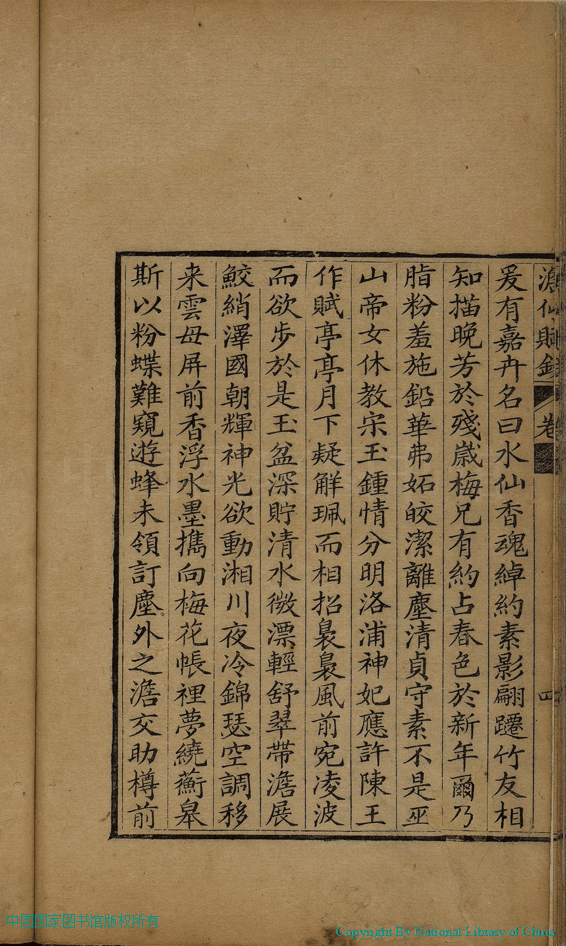 爰有嘉卉名曰水仙香魂綽約素影翩躚竹友相
知描晚芳於殘歲梅兄有約占春色於新年爾乃
脂粉羞施鉛華弗妬皎潔離塵清貞守素不是巫
山帝女休教宋玉鍾情分明洛浦神妃應許陳王
作賦亭亭月下疑解珮而相招裊裊風前宛凌波
而欲步於是玉盆深貯清水微漂輕舒翠帶澹展
鮫綃澤國朝輝神光欲動湘川夜冷錦瑟空調移
来雲母屏前香浮水墨攜向梅花帳裡夢繞蘅皋
斯以粉蝶難窺遊蜂未領訂塵外之澹交助樽前
中国国家图书馆版权所有
Copyright By National Library of China